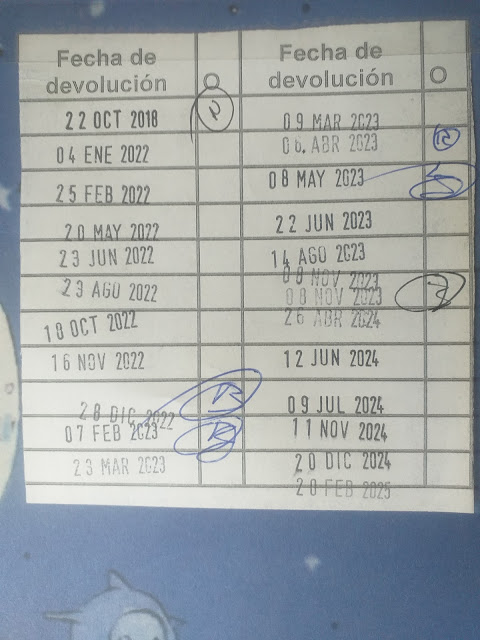 Fecha de devolución O
22 OCT 2018
04 ENE 2022
25 FEB 2022
20 MAY 2022
23 JUN 2022
23 AGO 2022
18 OCT 2022
16 NOV 2022
28 DIC 2022
07 FEB 2023
23 MAR 2023
Fecha de devolución O
09 MAR 2023
06. ABR 2023
08 MAY 2023
22 JUN 2023
14 AGO 2023
08 NOV 2023
08 NOV 2023
26 ABR 2024
12 JUN 2024
09 JUL 2024
11 NOV 2024
20 DIC 2024
28 FEB 2025